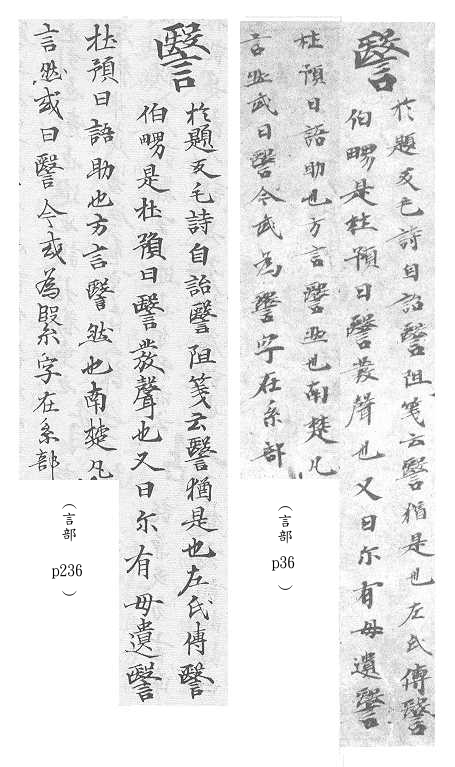 於題反毛詩自詒阻箋云猶是也左氏傳
伯舅是杜預曰發聲也又曰尓有母遺
杜預曰語助也方言然也南楚凡
言然或曰今或為字在糸部
(言部 p36)
於題反毛詩自詒阻箋云猶是也左氏傳
伯舅是杜預曰發聲也又曰尓有毋遺
杜預曰語助也方言然也南楚凡
言然或曰今或為繄字在糸部
(言部 p236)